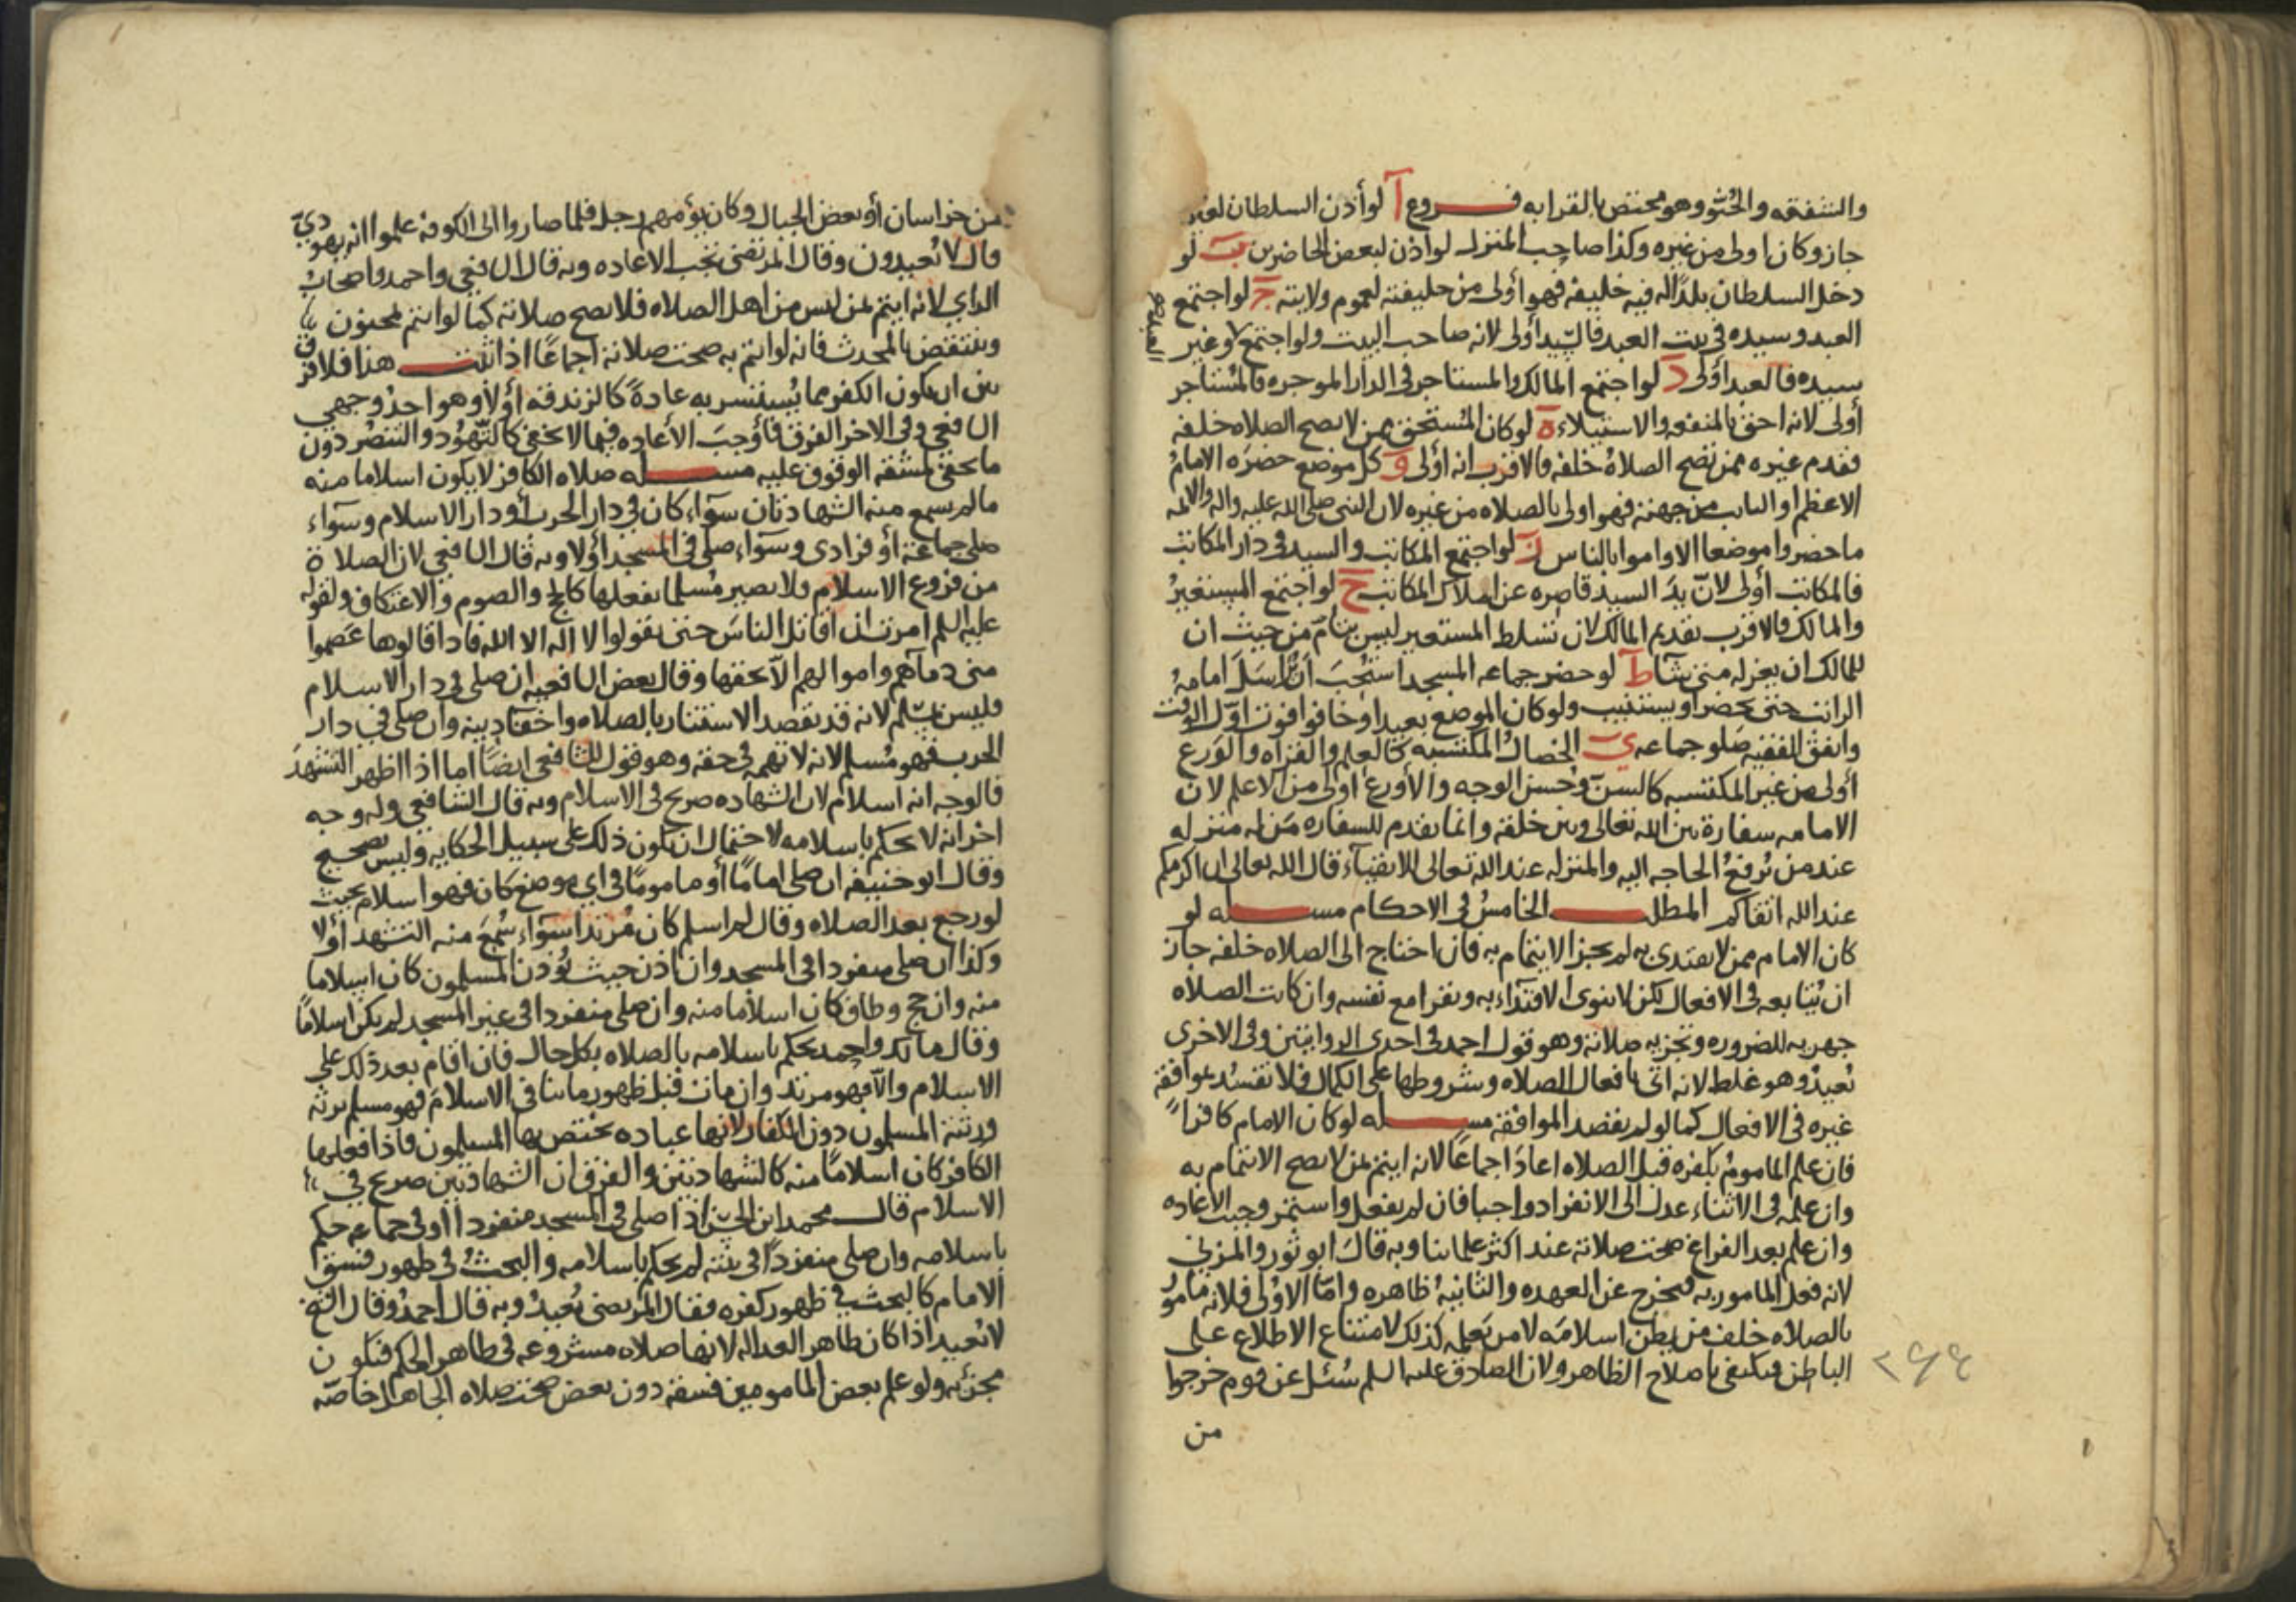 والشفقه والحنو وهو مختص بالقرابه فروع آ لو أذن السلطان لغيره
جاز وكان اولى من غيره وكذا صاحب المنزل لو اذن لبعض الحاضرين ب لو
دخل السلطان بلدًا له فيه خليفه فهو أولى من خليفته لعموم ولايته ج لو اجتمع
العبد وسيده في بيت العبد فالسيد أولى لانه صاحب البيت ولو اجتمع لا وغير
سيده فالعبد أولى د لو اجتمع المالك والمستاجر في الدار الموجره فالمستاجر
أولى لانه احق بالمنفعه والاستيلاء ه لو كان المستحق ممن لا يصح الصلاه خلفه
فقدم غيره ممن تصح الصلاة خلفه فالاقرب انه أولى و كل موضع حضره الامام
الاعظم او النايب من جهته فهو اولى بالصلاه من غيره لان النبي صلى الله عليه واله والائمه
ما حضروا موضعا الا واموا بالناس ز لو اجتمع المكاتب والسيد في دار المكاتب
فالمكاتب أولى لان يد السيد قاصره عن املاك المكاتب ح لو اجتمع المستعير
والمالك فالاقرب تقديم المالك لان تسلط المستعير ليس بتام من حيث ان
للمالك ان يعزله متى شآ ط لو حضر جماعه المسجد استحب ان يراسل امامه
الراتب حتى يحضر او يستنيب ولو كان الموضع بعيدا وخافوا فوت اول الوقت
وانفق الفقيه صلو جماعه ي الخصال المكتسبه كالعلم والقراه والورع
أولى من غير المكتسبه كالسن وحسن الوجه والأورع أولى من الاعلم لان
الامامه سفارة بين الله تعالى وبين خلقه وانما يقدم للسفاره من له منزله
عند من ترفع الحاجه اليه والمنزله عند الله تعالى للاتقياء قال الله تعالى ان اكرمكم
عند الله اتقاكم المطلب الخامس في الاحكام مسله لو
كان الامام ممن لا يقتدى به لم يجز الايتمام به فان احتاج الى الصلاه خلفه جاز
ان يتابعه في الافعال لكن لا ينوى الاقتداء به ويقرا مع نفسه وان كانت الصلاه
جهريه للضروره وتجزيه صلاته وهو قول احمد في احدى الروايتين وفي الاخرى
يعيد وهو غلط لانه اتى بافعال الصلاه وشروطها على الكمال فلا تفسد بموافقه
غيره في الافعال كما لو لم يقصد الموافقه مسله لو كان الامام كافرًا
فان علم الماموم بكفره قبل الصلاه اعاد اجماعًا لانه ايتم بمن لا يصح الائتمام به
وان علمه في الاثناء عدل الى الانفراد واجبا فان لم يفعل واستمر وجبت الاعاده
وان علم بعد الفراغ صحت صلاته عند اكثر علمائنا وبه قال ابو ثور والمزنى
لانه فعل المامور به فيخرج عن العهده والثانيه ظاهره واما الاولى فلانه مامور
بالصلاه خلف من يظن اسلامه لا من يعلمه كذلك لامتناع الاطلاع على
الباطن فيكتفى باصلاح الظاهر ولان الصادق عليه السلم سئل عن قوم خرجوا
من
من خراسان أو بعض الجبال وكان يؤمهم رجل فلما صاروا الى الكوفه علموا انه يهودي
قال لا يعيدون وقال المرتضى تجب الاعاده وبه قال الشافعي واحمد واصحاب
الراي لانه ايتم بمن ليس من اهل الصلاه فلا يصح صلاته كما لو ايتم بمجنون
وينتقض بالمحدث فانه لو ائتم به صحت صلاته اجماعًا اذا ثبت هذا فلا فرق
بين ان يكون الكفر مما يستسر به عادةً كالزندقه أولا وهو احد وجهي
الشافعي وفي الاخر الفرق فأوجب الأعاده فيما لا يخفى كالتهود والتنصر دون
ما يخفى لمشقه الوقوف عليه مسله صلاه الكافر لا يكون اسلاما منه
ما لم يسمع منه الشهادتان سوآء كان في دار الحرب أو دار الاسلام وسوآء
صلى جماعة أو فرادى وسوآء صلى في المسجد أولا وبه قال الشافعي لان الصلاة
من فروع الاسلام ولا يصير مسلما بفعلها كالحج والصوم والاعتكاف ولقوله
عليه السلم امرت ان اقاتل الناس حتى يقولوا لا اله الا الله فاذا قالوها عصموا
منى دمآءهم واموالهم الا بحقها وقال بعض الشافعيه ان صلى في دار الاسلام
فليس بمسلم لانه قد يقصد الاستتار بالصلاه واخفا دينه وان صلى في دار
الحرب فهو مسلم لانه لا تهمه في حقه وهو قول للشافعي ايضًا اما اذا اظهر التشهد
فالوجه انه اسلام لان الشهاده صريح في الاسلام وبه قال الشافعي وله وجه
اخر انه لا يحكم باسلامه لاحتمال ان يكون ذلك على سبيل الحكايه وليس بصحيح
وقال ابو حنيفه ان صلى امامًا أو مامومًا في اي موضع كان فهو اسلام بحيث
لو رجع بعد الصلاه وقال لم اسلم كان مرتدا سوآء سمع منه التشهد أولا
وكذا ان صلى منفردا في المسجد وان اذن حيث يؤذن المسلمون كان اسلاما
منه وان حج وطاف كان اسلاما منه وان صلى منفردا في غير المسجد لم يكن اسلامًا
وقال مالك واحمد يحكم باسلامه بالصلاه بكل حال فان اقام بعد ذلك على
الاسلام والا فهو مرتد وان مات قبل ظهور ما ينافي الاسلام فهو مسلم يرثه
ورثته المسلمون دون الكفار لانها عباده تختص بها المسلمون فاذا فعلها
الكافر كان اسلامًا منه كالشهادتين والفرق ان الشهادتين صريح في
الاسلام قال محمد ابن الحسن اذا صلى في المسجد منفردا او في جماعه حكم
باسلامه وان صلى منفردًا في بيته لم يحكم باسلامه والبحث في ظهور فسق
الامام كالبحث في ظهور كفره فقال المرتضى يعيد وبه قال احمد وقال الشيخ
لا يعيد اذا كان ظاهر العداله لانها صلاه مشروعه في ظاهر الحكم فتكون
مجزئه ولو علم بعض المامومين فسقه دون بعض صحت صلاه الجاهل خاصه